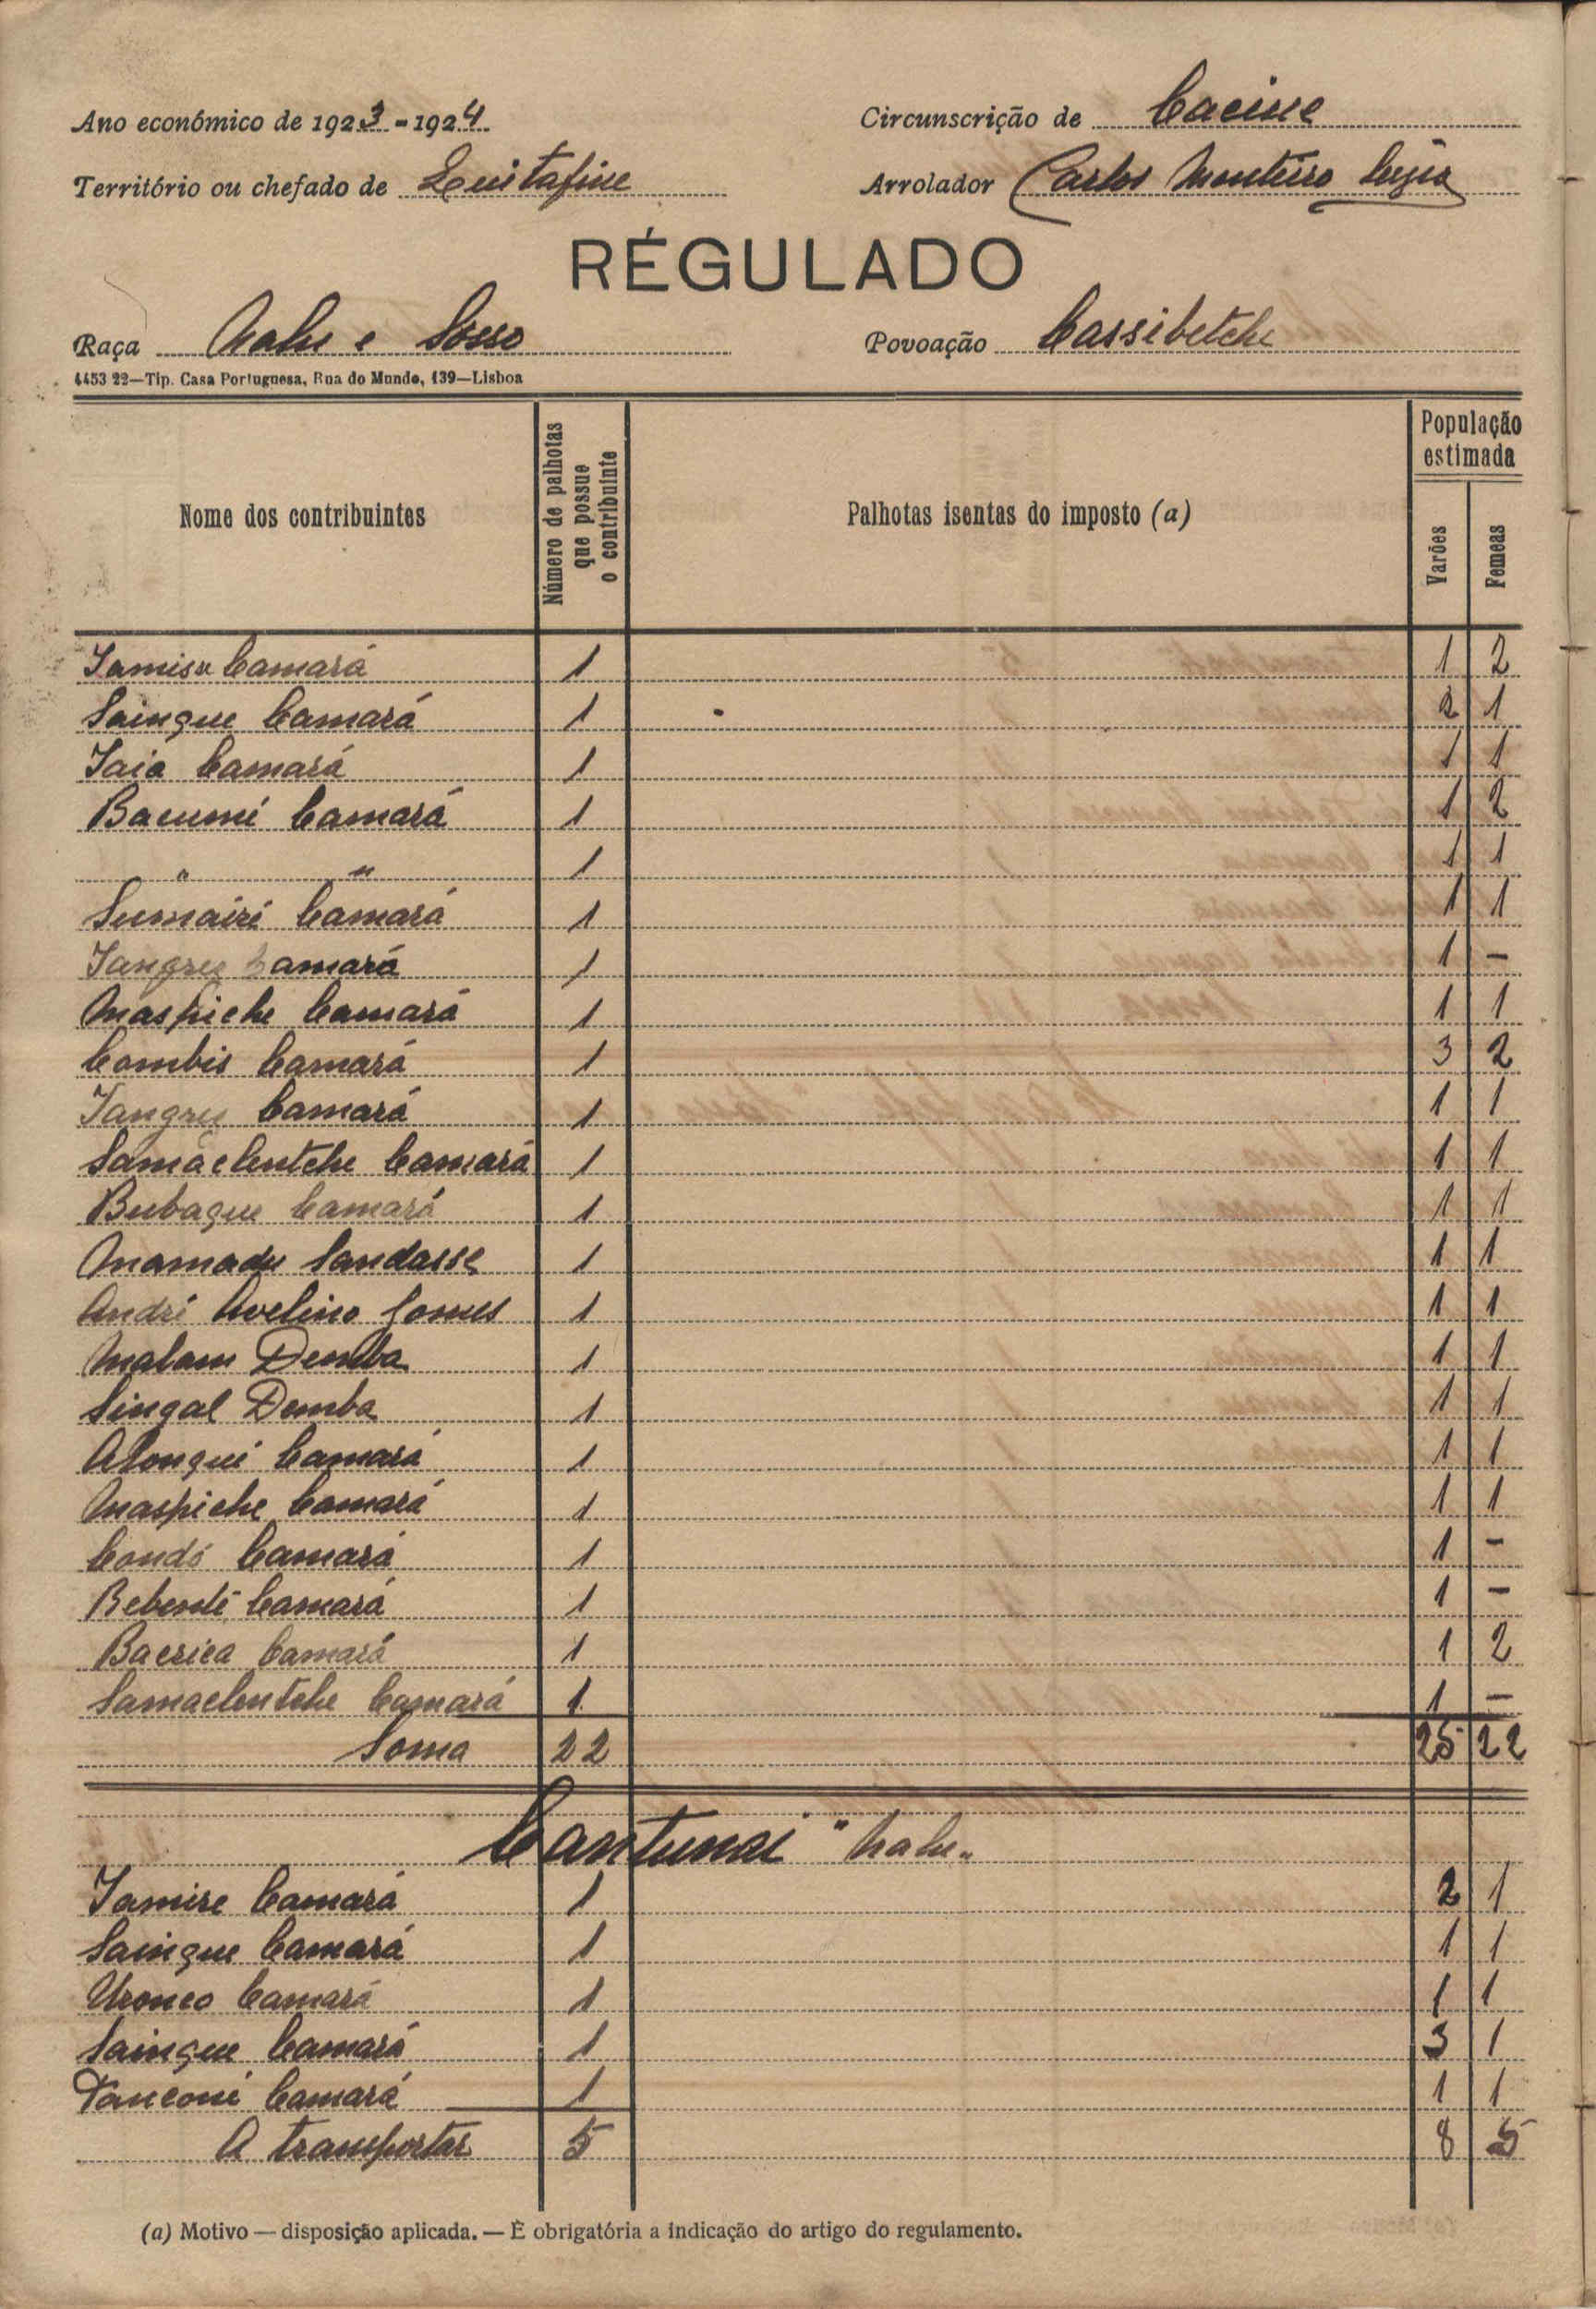 Ano económico de 1923-1924
Circunscrição de Cacine
Território ou chefado de Quitafine
Arrolador Carlos Monteiro
RÉGULADO
Raça Nalu e Sosso
Povoação Cassibetche
4453 22—Tip. Casa Portuguesa, Rua do Mundo, 139—Lisboa
Nome dos contribuintes
Número de palhotas que possue o contribuinte
Palhotas isentas do imposto (a)
População estimada
Varões Femeas
Iamisa Camará 1 1 2
Saingue Camará 1 2 1
Iaia Camará 1 1 1
Bacumé Camará 1 1 2
" " 1 1 1
Sumairé Camará 1 1 1
Tangres Camará 1 1 -
Maspiche Camará 1 1 1
Combis Camará 1 3 2
Tangres Camará 1 1 1
Samáclentche Camará 1 1 1
Bubaque Camará 1 1 1
Mamadu Sandasse 1 1 1
André Avelino Gomes 1 1 1
Malam Demba 1 1 1
Singal Demba 1 1 1
Alonqué Camará 1 1 1
Maspiche Camará 1 1 1
Condó Camará 1 1 -
Bebenté Camará 1 1 -
Bacrica Camará 1 1 2
Samaclentche Camará 1 1 -
Soma 22 25 22
Cantunei "Nalu"
Iamire Camará 1 2 1
Saingue Camará 1 1 1
Uronco Camará 1 1 1
Saingue Camará 1 3 1
Tanconé Camará 1 1 1
A transportar 5 8 5
(a) Motivo — disposição aplicada. — É obrigatória a indicação do artigo do regulamento.